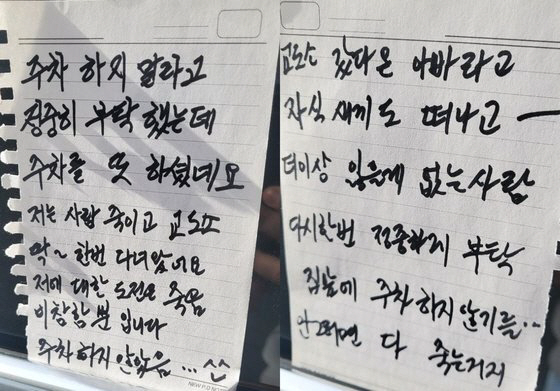 주차 하지 말라고
정중히 부탁 했는데
주차를 또 하셨네요
저는 사람 죽이고 교도소
딱~ 한번 다녀왔어요
저에 대한 도전은 죽음
비참함 뿐 입니다
주차 하지 않았음...
교도소 갔다 온 아빠라고
자식 새끼도 떠나고
더이상 잃을게 없는 사람
다시한번 정중하게 부탁
집앞에 주차 하지 않기를..
안그러면 다 죽는거지